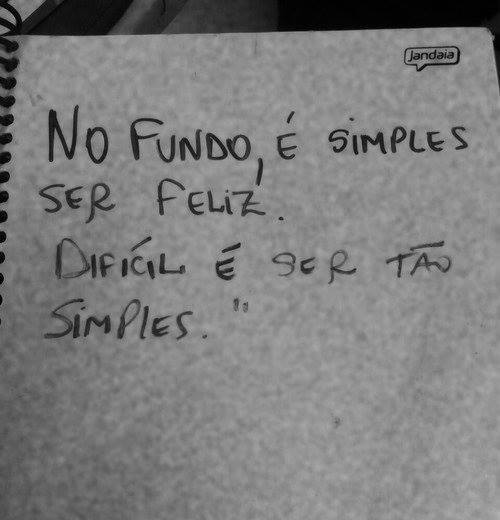 Jandaia
NO FUNDO, É SIMPLES
SER FELIZ.
DIFÍCIL É SER TÃO
SIMPLES."